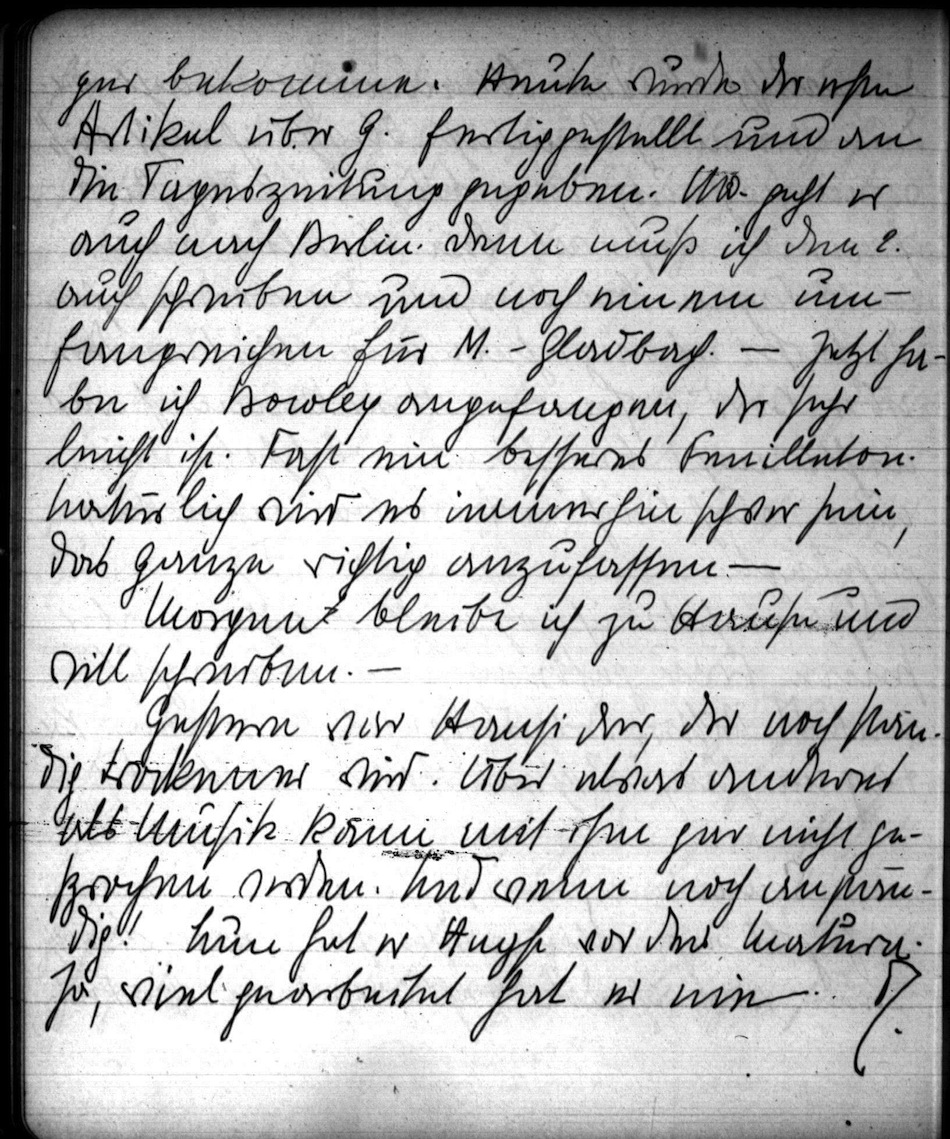 gar bekomme. Heute wurde der erste
Artikel über G. fertiggestellt und an
die Tageszeitung gegeben. Uw. geht er
auch nach Berlin. Dann muß ich den 2.
auch schreiben und noch einen um-
fangreichen für M.-Gladbach. — Jetzt ha-
be ich Bowley angefangen, der sehr
leicht ist. Fast ein besseres Feuilleton.
Natürlich wird es immerhin schwer sein,
das Ganze richtig anzufassen —
Morgen bleibe ich zu Hause und
will schreiben. —
Gestern war Hansi da, der noch stän-
dig trockener wird. Über etwas anderes
als Musik kann mit ihm gar nicht ge-
sprochen werden. Und wenn noch anstän-
dig! Nun hat er Angst vor der Matura.
Ja, viel gearbeitet hat er nie.